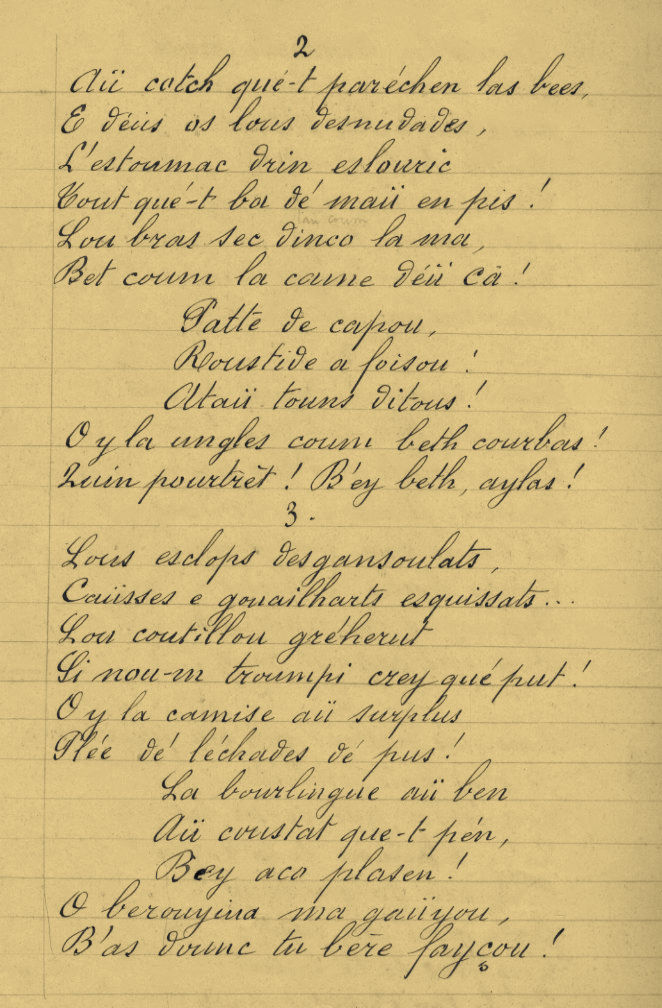 2
Aü cotch qué-t paréchen las bees,
E déüs os lous desnudades,
L'estoumac drin eslouric
Tout qué-t ba dé maü en pis !
tau coum
Lou bras sec dinco la ma,
Bet coum la came déü câ !
Patte de capou,
Roustide a foisou !
Ataü touns ditous !
O y la ungles coum beth courbas !
Quin pourtrèt ! B'ey beth, aylas !
3.
Lous esclops desgansoulats,
Caüsses e gouailharts esquissats...
Lou coutillou gréherut
Si nou-m troumpi crey qué put !
O y la camise aü surplus
Plée dé léchades dé pus !
La bourlingue aü ben
Aü coustat que-t pén,
Bey aco plasen !
O berouyina ma gaüyou,
B'as dounc tu bère fayçou !